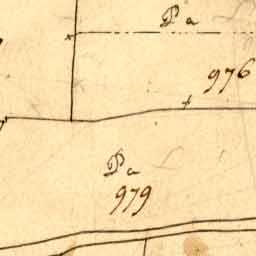 Pa
976
Pa
979